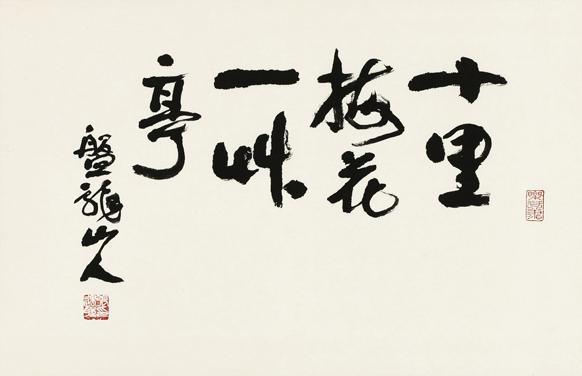 十里
梅花
一艸
亭
盤龍山人